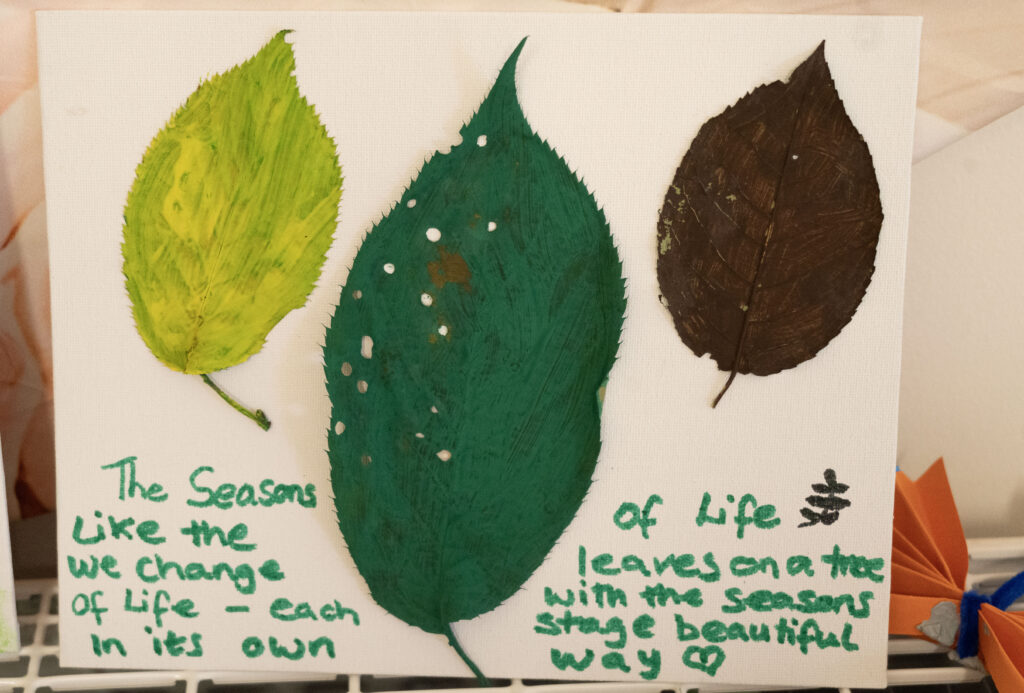 The Seasons of Life
Like the leaves on a tree
we change with the seasons
of Life – each stage beautiful
in its own way ♡